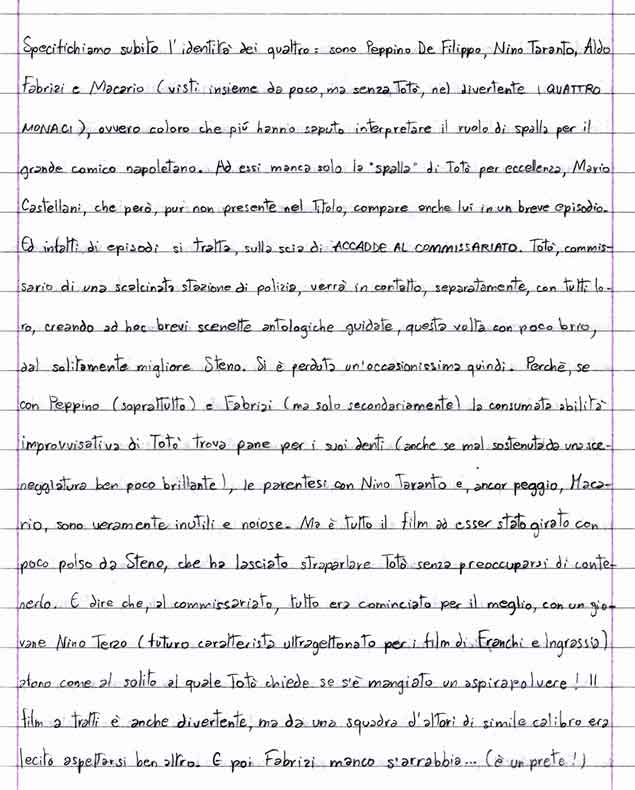 Specifichiamo subito l'identità dei quattro: sono Peppino De Filippo, Nino Taranto, Aldo
Fabrizi e Macario (visti insieme da poco, ma senza Totò, nel divertente I QUATTRO
MONACI), ovvero coloro che più hanno saputo interpretare il ruolo di spalla per il
grande comico napoletano. Ad essi manca solo la "spalla" di Totò per eccellenza, Mario
Castellani, che però, pur non presente nel Titolo, compare anche lui in un breve episodio.
Ed infatti di episodi si tratta, sulla scia di ACCADDE AL COMMISSARIATO. Totò, commis-
sario di una scalcinata stazione di polizia, verrà in contatto, separatamente, con tutti lo-
ro, creando ad hoc brevi scenette antologiche guidate, questa volta con poco brio,
dal solitamente migliore Steno. Si è perduta un'occasionissima quindi. Perchè, se
con Peppino (soprattutto) e Fabrizi (ma solo secondariamente) la consumata abilità
improvvisativa di Totò trova pane per i suoi denti (anche se mal sostenuta da una sce-
neggiatura ben poco brillante), le parentesi con Nino Taranto e, ancor peggio, Maca-
rio, sono veramente inutili e noiose. Ma è tutto il film ad esser stato girato con
poco polso da Steno, che ha lasciato straparlare Totò senza preoccuparsi di conte-
nerlo. E dire che, al commissariato, tutto era cominciato per il meglio, con un gio-
vane Nino Terzo (futuro caratterista ultragettonato per i film di Franchi e Ingrassia)
atono come al solito al quale Totò chiede se s'è mangiato un aspirapolvere! Il
film a tratti è anche divertente, ma da una squadra d'attori di simile calibro era
lecito aspettarsi ben altro. E poi Fabrizi manco s'arrabbia... (è un prete!)